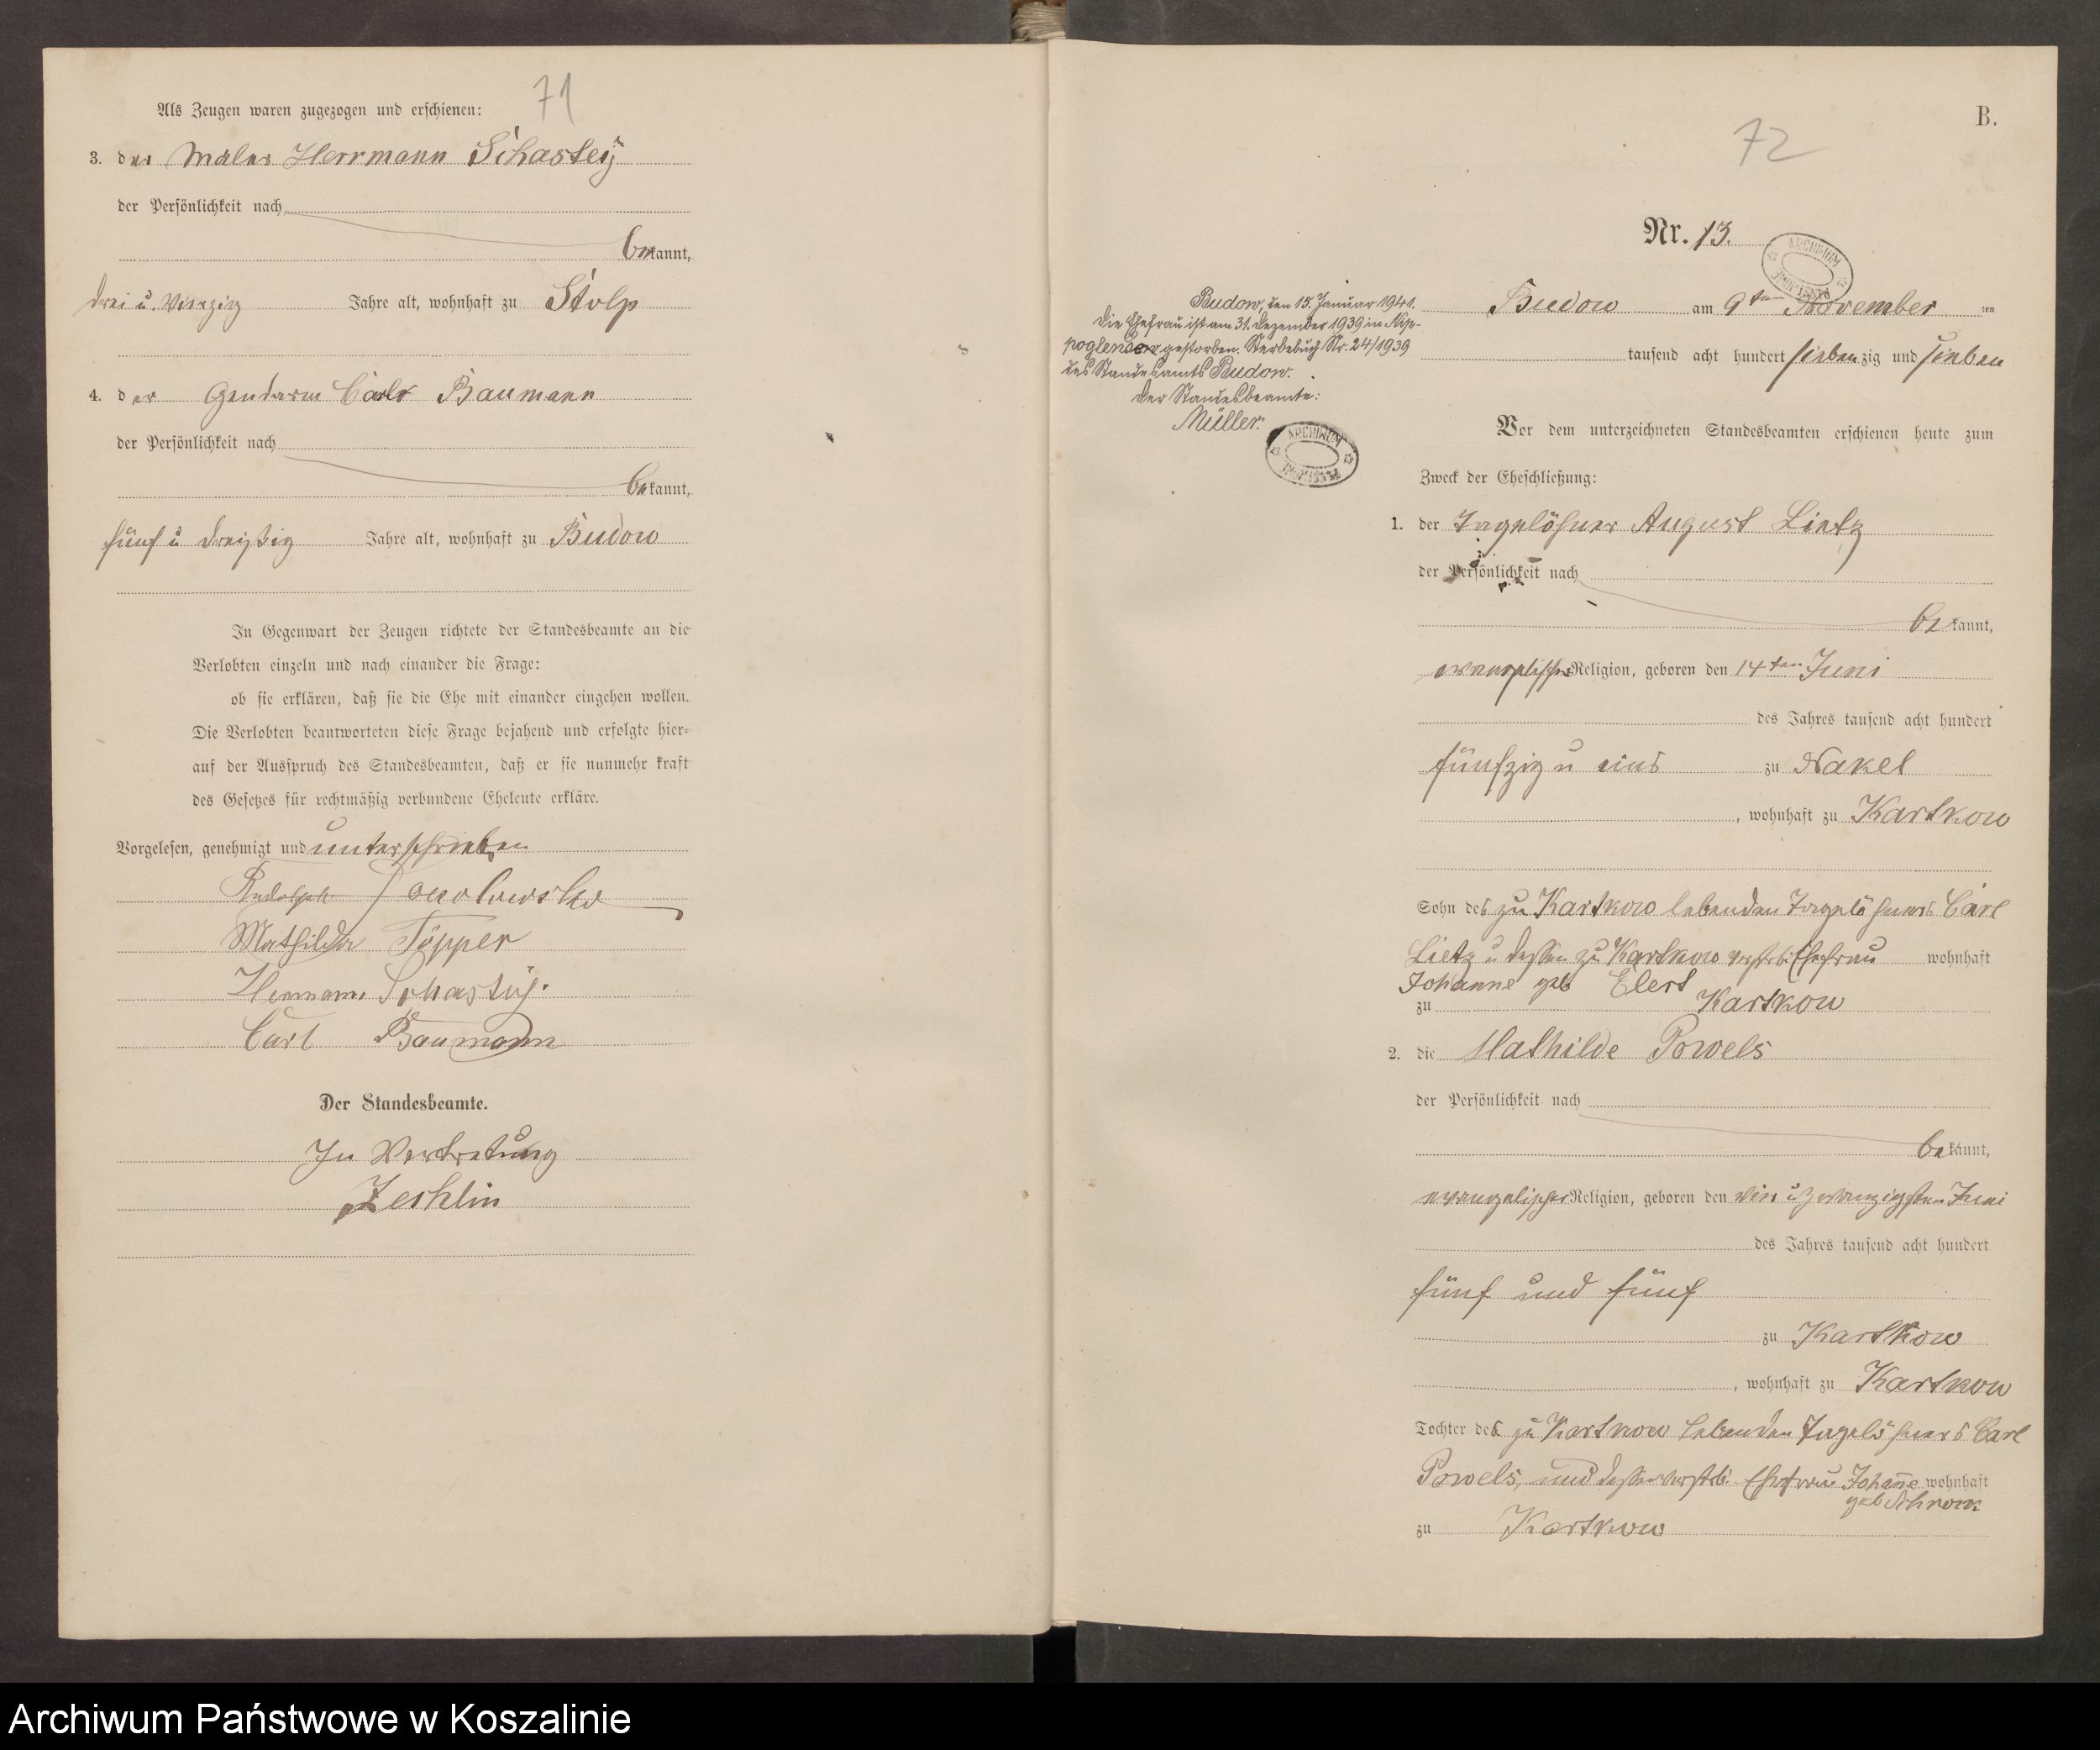 71
Als Zeugen waren zugezogen und erschienen:
3. der Maler Herrmann Schasteij
der Persönlichkeit nach
bekannt,
drei u. vierzig Jahre alt, wohnhaft zu Stolp
4. der Gendarm Carl Baumann
der Persönlichkeit nach
bekannt,
fünf u dreißig Jahre alt, wohnhaft zu Budow
In Gegenwart der Zeugen richtete der Standesbeamte an die
Verlobten einzeln und nach einander die Frage:
ob sie erklären, daß sie die Ehe mit einander eingehen wollen.
Die Verlobten beantworteten diese Frage bejahend und erfolgte hier-
auf der Ausspruch des Standesbeamten, daß er sie nunmehr kraft
des Gesetzes für rechtmäßig verbundene Eheleute erkläre.
Vorgelesen, genehmigt und unterschrieben
Rudolph
Mathilde Töpper
Hermann
Carl Baumann
Der Standesbeamte.
In Vertretung
Zechlin
B.
72
Nr. 13.
Budow am 9ten November ten
tausend acht hundert siebenzig und sieben
Budow, den 15. Januar 1941.
Die Ehefrau ist am 31. Dezember 1939 in Nip-
poglense gestorben. Sterbebuch Nr. 24/1939
des Standesamts Budow.
Der Standesbeamte:
Müller.
ARCHIWUM
Vor dem unterzeichneten Standesbeamten erschienen heute zum
Zweck der Eheschließung:
1. der Tagelöhner August Lietz
der Persönlichkeit nach
bekannt,
evangelischer Religion, geboren den 14ten Juni
des Jahres tausend acht hundert
fünfzig u eins zu Nakel
, wohnhaft zu Kartkow
Sohn des zu Kartkow lebenden Tagelöhners Carl
Lietz u dessen zu Kartkow verstrb. Ehefrau wohnhaft
Johanne geb Elert
zu Kartkow
2. die Mathilde Powels
der Persönlichkeit nach
bekannt,
evangelischer Religion, geboren den vier u zwanzigsten Juni
des Jahres tausend acht hundert
fünf und fünf
zu Kartkow
, wohnhaft zu Kartkow
Tochter des zu Kartkow lebenden Tagelöhners Carl
Powels, und dessen verstrb. Ehefrau Johanne wohnhaft
geb
zu Kartkow
Archiwum Państwowe w Koszalinie